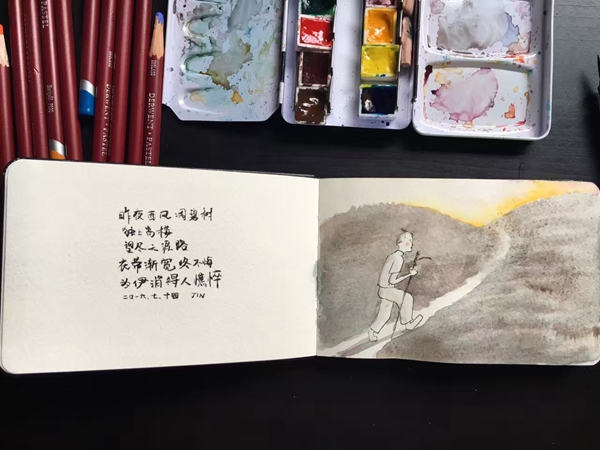 DERWENT • PASTEL
DERWENT • PASTEL
昨夜西风凋碧树
独上高楼
望尽天涯路
衣带渐宽终不悔
为伊消得人憔悴
二〇一六、七、十四 JIN